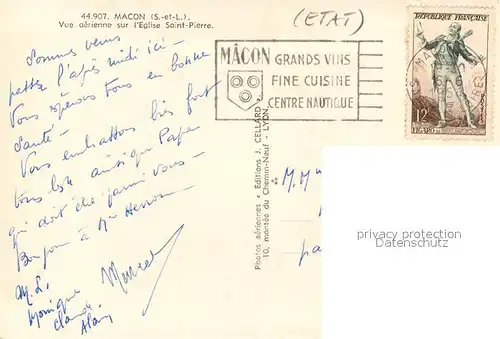 44.907. MACON (S.-et-L.).
Vue aérienne sur l'Eglise Saint-Pierre.
(ETAT)
MÂCON
GRANDS VINS
FINE CUISINE
CENTRE NAUTIQUE
REPUBLIQUE FRANÇAISE
12
FIGARO
Sommes venus
passer l'après midi ici -
Vous espérons tous en bonne
Santé -
Vous embrassons bien fort
tous les ainsi que Papa
qui doit être parmi vous -
Bonjour à Mr
Marcel
M. L.
Monique
Claude
Alain
Photos aériennes « Editions J. CELLARD »
10, montée du Chemin-Neuf - LYON
M. M
privacy protection
Datenschutz